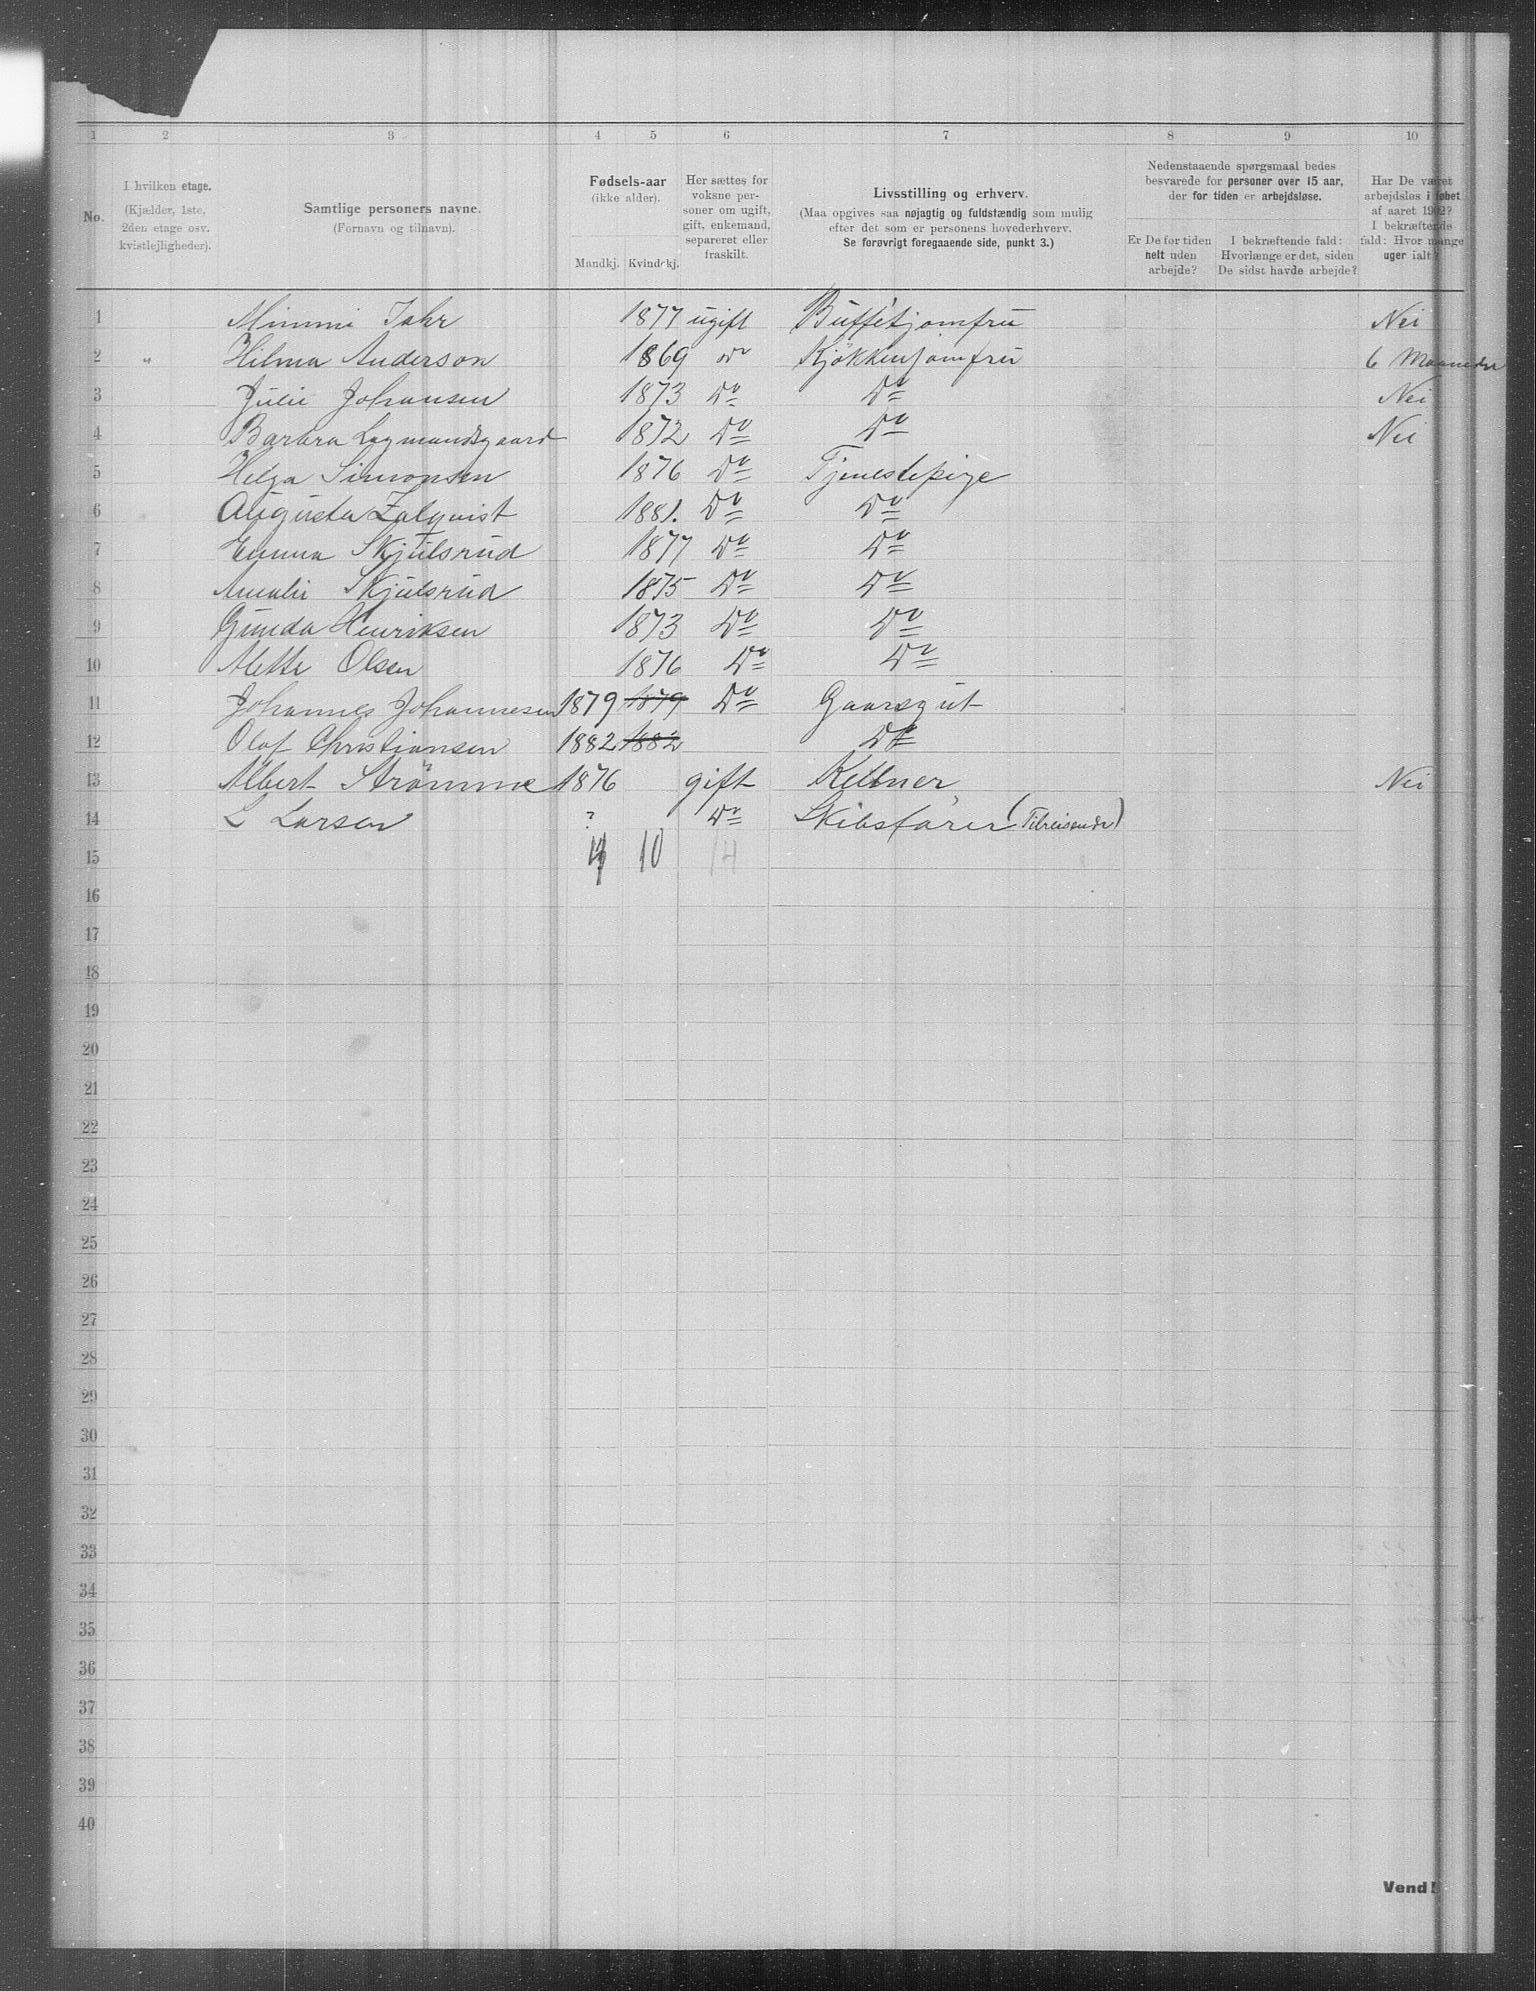 1 2 3 4 5 6 7 8 9 10
No.
I hvilken etage.
(Kjælder, 1ste,
2den etage osv.
kvistlejligheder).
Samtlige personers navne.
(Fornavn og tilnavn).
Fødsels-aar
(ikke alder).
Mandkj. Kvindekj.
Her sættes for
voksne per-
soner om ugift,
gift, enkemand,
separeret eller
fraskilt.
Livsstilling og erhverv.
(Maa opgives saa nøjagtig og fuldstændig som mulig
efter det som er personens hovederhverv.
Se forøvrigt foregaaende side, punkt 3.)
Nedenstaaende spørgsmaal bedes
besvarede for personer over 15 aar,
der for tiden er arbejdsløse.
Er De for tiden
helt uden
arbejde?
I bekræftende fald:
Hvorlænge er det, siden
De sidst havde arbejde?
Har De været
arbejdsløs i løbet
af aaret 1902?
I bekræftende
fald: Hvor mange
uger ialt?
1 Mimmi Jahr 1877 ugift Buffetjomfru Nei
2 " Hilma Anderson 1869 do Kjøkkenjomfru 6 Maaneder
3 Julie Johansen 1873 Do Do Nei
4 Barbra Lagmandsgaard 1872 Do Do Nei
5 Helga Simonsen 1876 Do Tjenestepige
6 Augusta Zalqvist 1881. Do Do
7 Emma Skjulsrud 1877 Do Do
8 Amalie Skjulsrud 1875 Do Do
9 Gunda Henriksen 1873 Do Do
10 Mette Olsen 1876 Do Do
11 Johannes Johannesen 1879 1879 Do Gaardsgut
12 Olaf Christiansen 1882 1882 Do
13 Albert Strömme 1876 gift Kellner Nei
14 L Larsen ? Do Skibsfører (Tilreisende)
15 4 10 14
16
17
18
19
20
21
22
23
24
25
26
27
28
29
30
31
32
33
34
35
36
37
38
39
40
Vend!